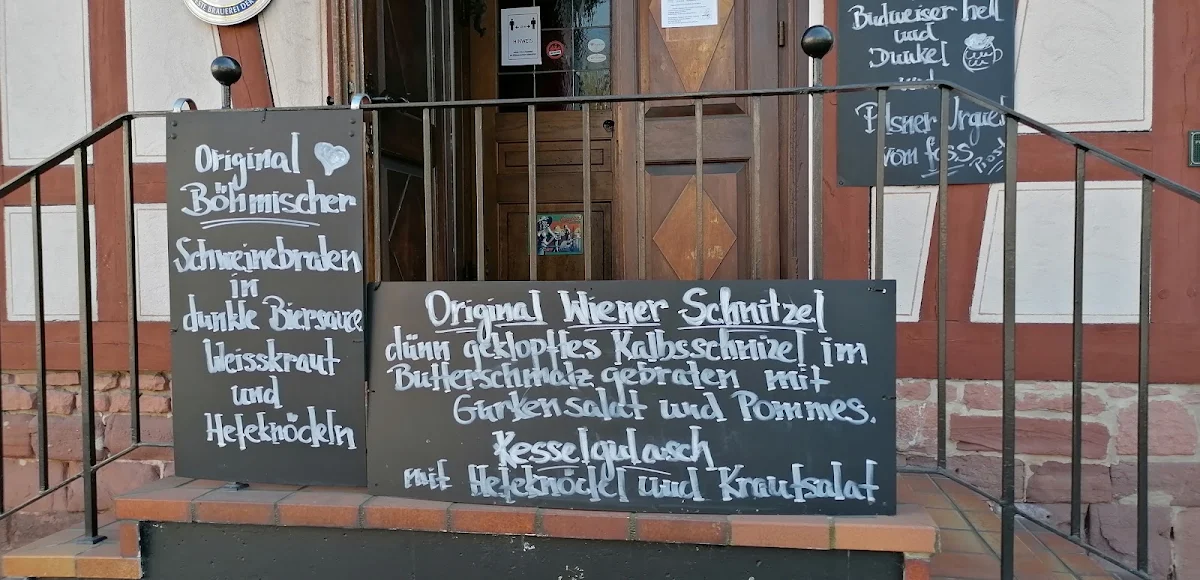 Original
Böhmischer
Schweinebraten
in
dunkle Biersauce
Weisskraut
und
Hefeknödeln
Original Wiener Schnitzel
dünn geklopftes Kalbsschnizel im
Butterschmalz gebraten mit
Gurkensalat und Pommes.
Kesselgulasch
mit Hefeknödel und Krautsalat
Budweiser hell
und
Dunkel
und
Pilsner Urquell
vom fass.
Prost
HINWEIS